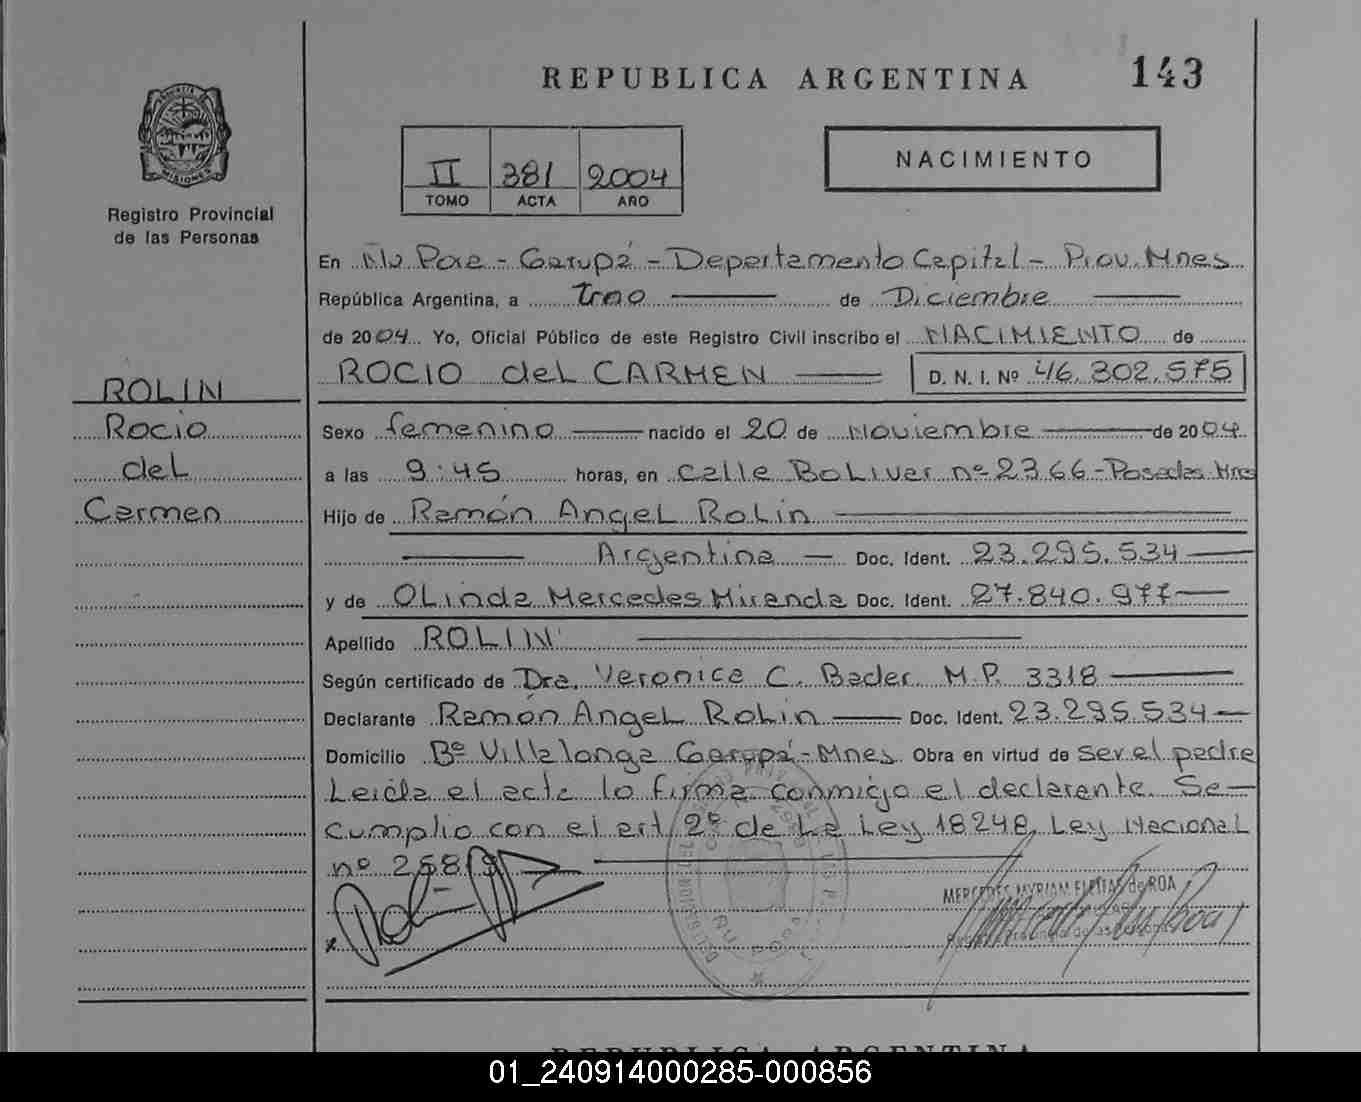 REPUBLICA ARGENTINA 143
II 381 2004
TOMO ACTA AÑO
NACIMIENTO
MISIONES
Registro Provincial
de las Personas
En Ña Poxe - Garupá - Departamento Capital - Prov. Mnes
República Argentina, a Uno de Diciembre
de 2004 Yo, Oficial Público de este Registro Civil inscribo el NACIMIENTO de
ROCIO del CARMEN D. N. I. Nº 46.302.575
ROLIN
Rocio
del
Carmen
Sexo femenino nacido el 20 de Noviembre de 2004
a las 9:45 horas, en calle Bolivar nº 2366 - Posadas Mnes
Hijo de Ramón Angel Rolin
Argentina Doc. Ident. 23.295.534
y de Olinda Mercedes Miranda Doc. Ident. 27.840.977
Apellido ROLIN
Según certificado de Dra. Veronica C. Bader M.P. 3318
Declarante Ramón Angel Rolin Doc. Ident. 23.295.534
Domicilio Bº Villalonga Garupá - Mnes Obra en virtud de ser el padre
Leida el acta lo firma conmigo el declarante. Se
cumplio con el art 2º de La Ley 18248, Ley Nacional
nº 25819
MERCEDES MYRIAM FLEITAS de ROA
REPUBLICA ARGENTINA
01_240914000285-000856